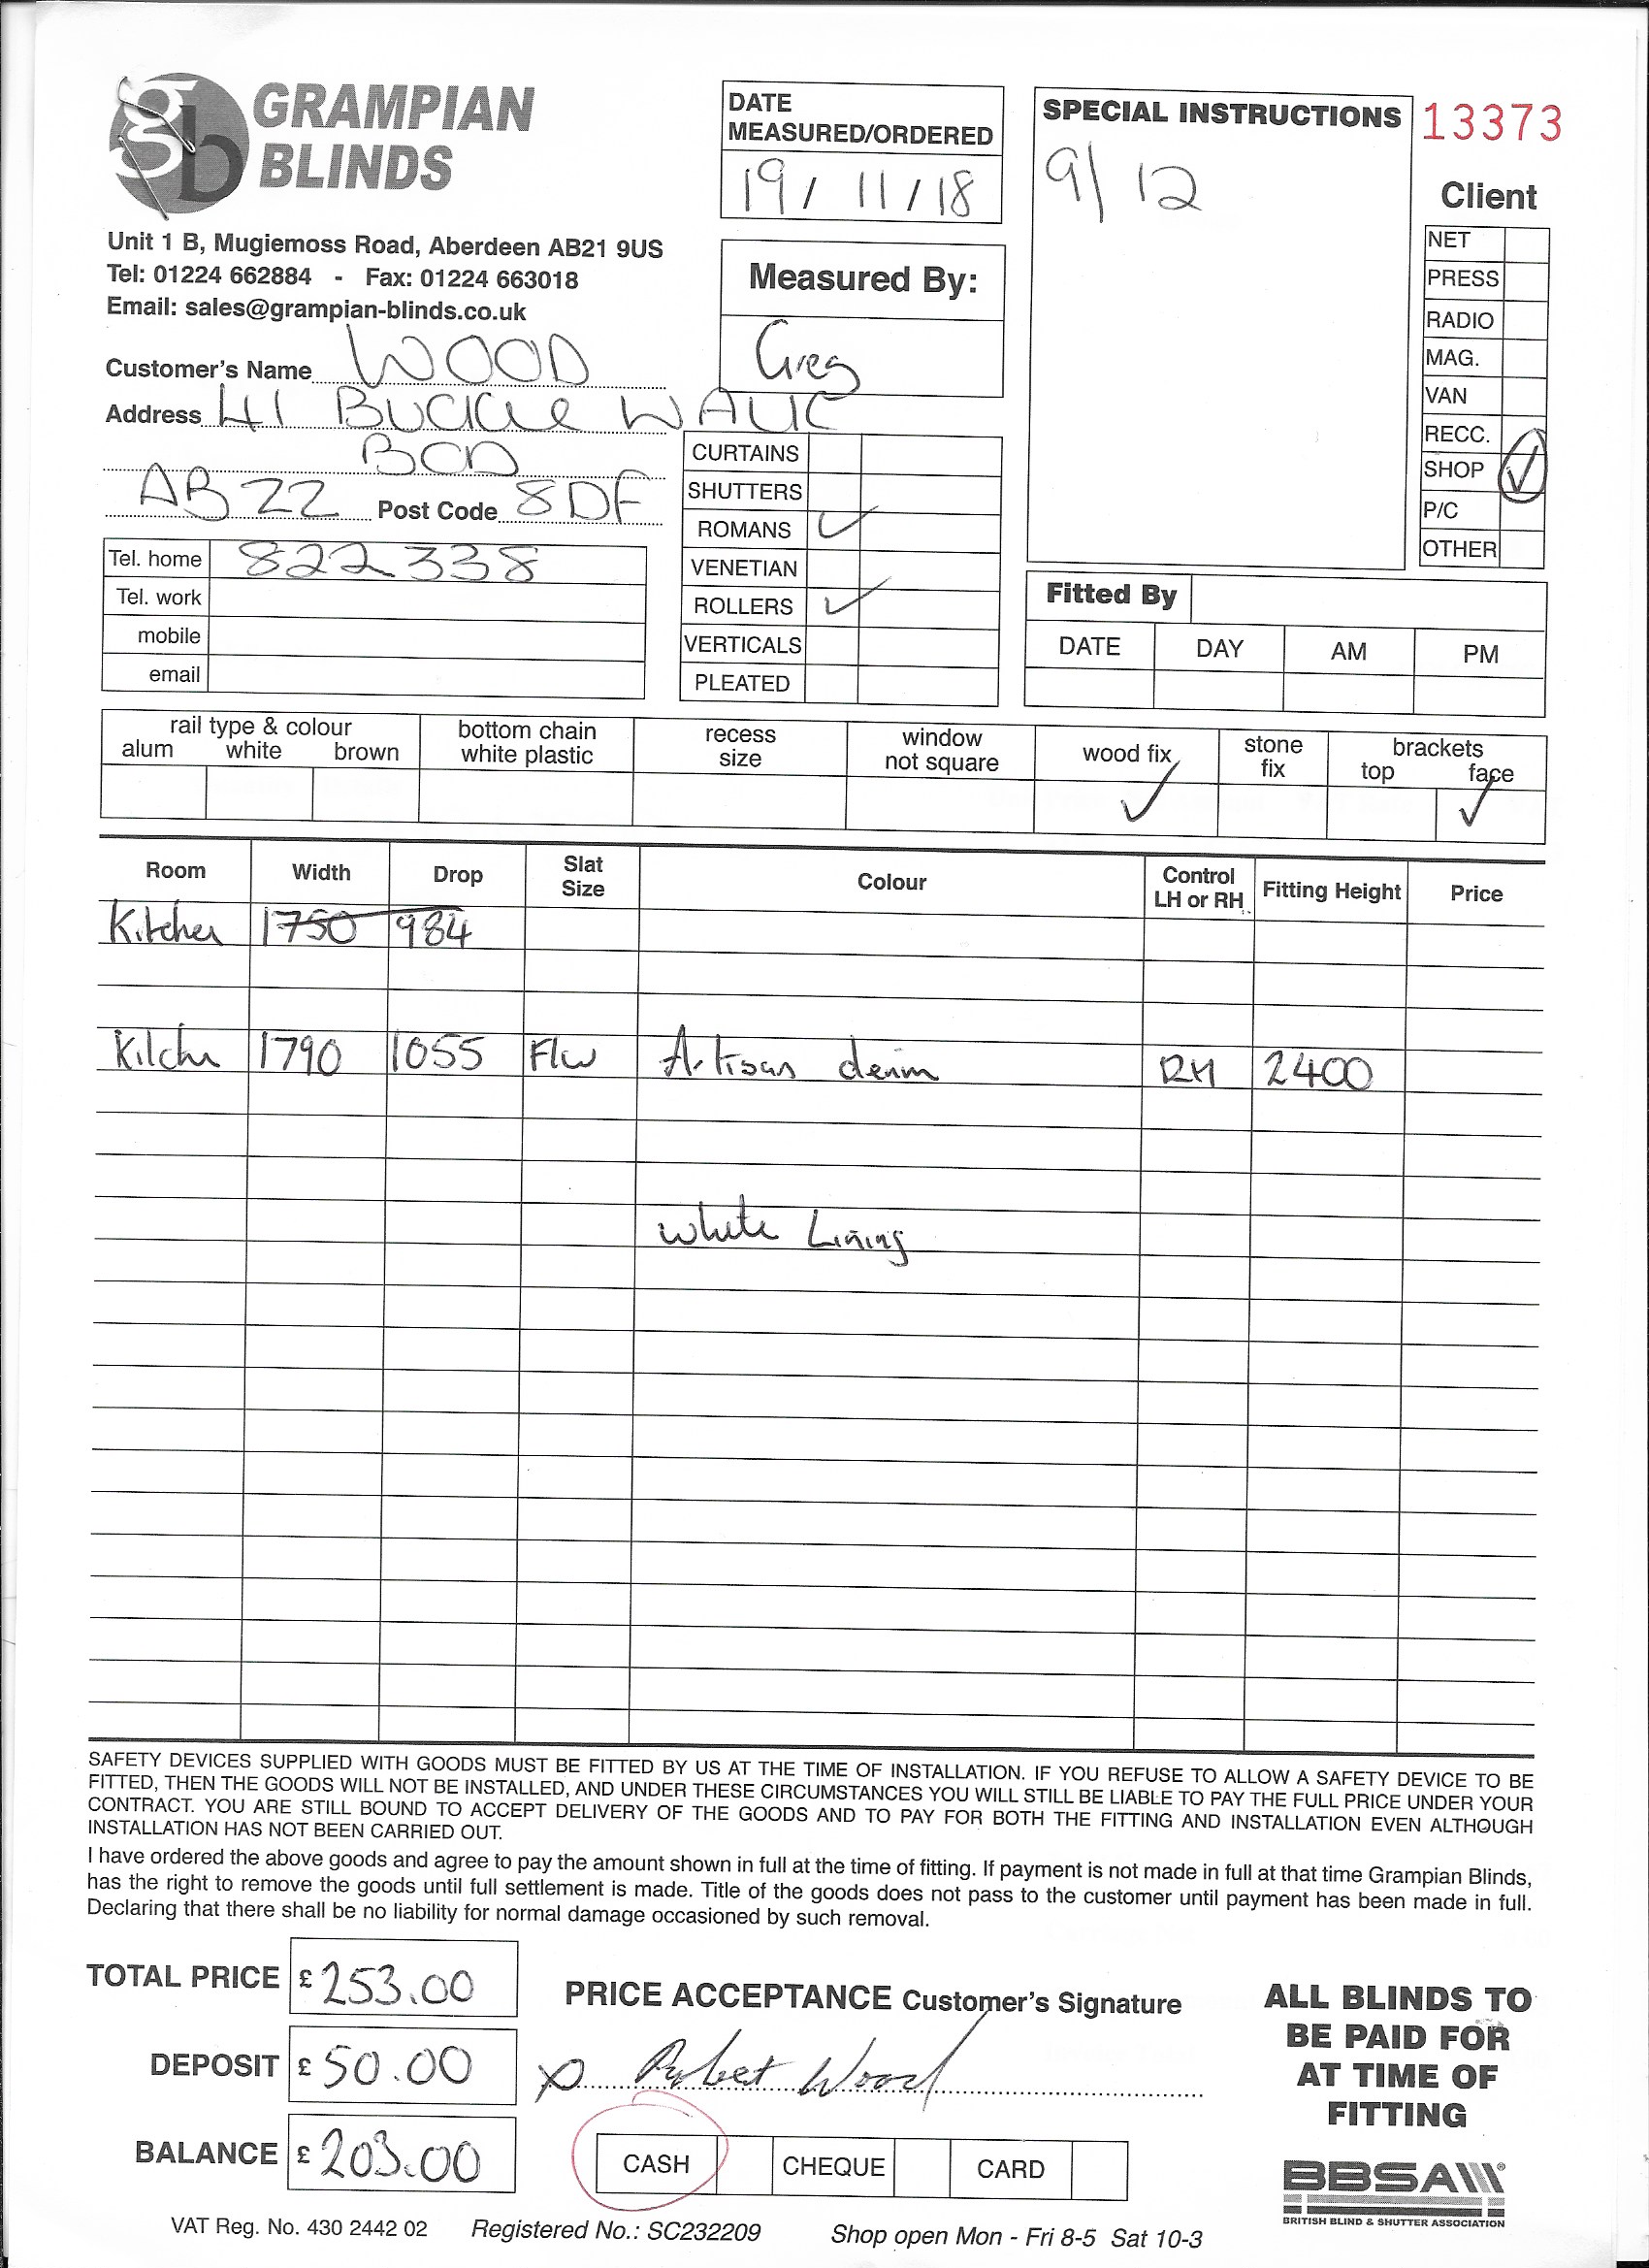 gb GRAMPIAN BLINDS
Unit 1 B, Mugiemoss Road, Aberdeen AB21 9US
Tel: 01224 662884 - Fax: 01224 663018
Email: sales@grampian-blinds.co.uk
Customer's Name WOOD
Address 41 BUCKIE WALK
BOD
AB22 Post Code 8DF
Tel. home 822338
Tel. work
mobile
email
DATE MEASURED/ORDERED
19/11/18
Measured By:
Greg
CURTAINS
SHUTTERS
ROMANS ✓
VENETIAN
ROLLERS ✓
VERTICALS
PLEATED
SPECIAL INSTRUCTIONS
9/12
13373
Client
NET
PRESS
RADIO
MAG.
VAN
RECC.
SHOP ✓
P/C
OTHER
Fitted By
DATE DAY AM PM
rail type & colour
alum white brown
bottom chain
white plastic
recess
size
window
not square
wood fix ✓
stone
fix
brackets
top face ✓
Room Width Drop Slat Size Colour Control LH or RH Fitting Height Price
Kitchen 1750 984
Kitchn 1790 1055 Flw Artisan denim RH 2400
White Lining
SAFETY DEVICES SUPPLIED WITH GOODS MUST BE FITTED BY US AT THE TIME OF INSTALLATION. IF YOU REFUSE TO ALLOW A SAFETY DEVICE TO BE
FITTED, THEN THE GOODS WILL NOT BE INSTALLED, AND UNDER THESE CIRCUMSTANCES YOU WILL STILL BE LIABLE TO PAY THE FULL PRICE UNDER YOUR
CONTRACT. YOU ARE STILL BOUND TO ACCEPT DELIVERY OF THE GOODS AND TO PAY FOR BOTH THE FITTING AND INSTALLATION EVEN ALTHOUGH
INSTALLATION HAS NOT BEEN CARRIED OUT.
I have ordered the above goods and agree to pay the amount shown in full at the time of fitting. If payment is not made in full at that time Grampian Blinds,
has the right to remove the goods until full settlement is made. Title of the goods does not pass to the customer until payment has been made in full.
Declaring that there shall be no liability for normal damage occasioned by such removal.
TOTAL PRICE £253.00
DEPOSIT £50.00
BALANCE £203.00
PRICE ACCEPTANCE Customer's Signature
x Robert Wood
CASH CHEQUE CARD
ALL BLINDS TO
BE PAID FOR
AT TIME OF
FITTING
BBSA®
BRITISH BLIND & SHUTTER ASSOCIATION
VAT Reg. No. 430 2442 02 Registered No.: SC232209 Shop open Mon - Fri 8-5 Sat 10-3